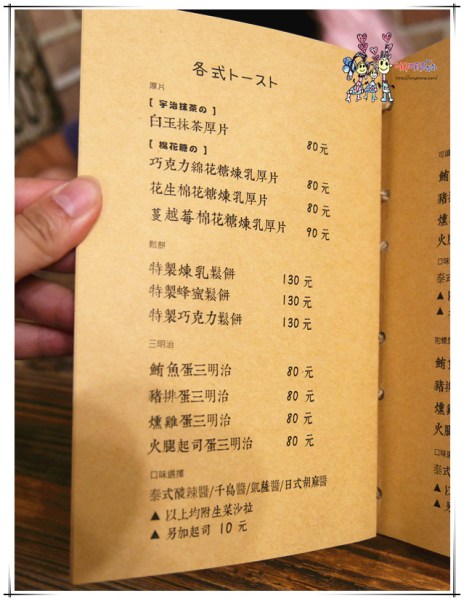 各式トースト
厚片
[ 宇治抹茶の ]
白玉抹茶厚片 80元
[ 棉花糖の ]
巧克力綿花糖煉乳厚片 80元
花生棉花糖煉乳厚片 80元
蔓越莓棉花糖煉乳厚片 90元
鬆餅
特製煉乳鬆餅 130元
特製蜂蜜鬆餅 130元
特製巧克力鬆餅 130元
三明治
鮪魚蛋三明治 80元
豬排蛋三明治 80元
燻雞蛋三明治 80元
火腿起司蛋三明治 80元
口味選擇
泰式酸辣醬/千島醬/凱薩醬/日式胡麻醬
▲ 以上均附生菜沙拉
▲ 另加起司 10 元
鮪
豬排
燻雞
火
口味
泰式
▲
▲
鮪
豬
燻
火
口味選
泰式
▲
▲